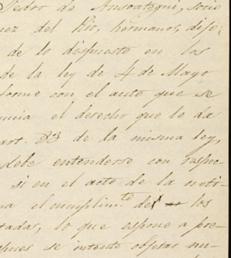 Pedro de Ansoategui, socio
ez del Rio, hermanos, dijo:
de lo dispuesto en los
de la ley de 4 de Mayo
forme con el auto que se
uncia el derecho que le da
art. 23 de la misma ley,
debe entenderse con respe
si en el acto de la noti
na el cumplim.to de los
tada, lo que espone a fin
pues se intente objetar nu